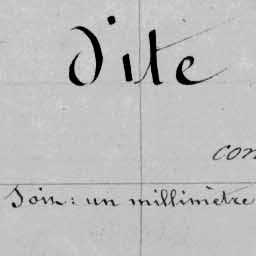 dite
con
Soit : un millimètre